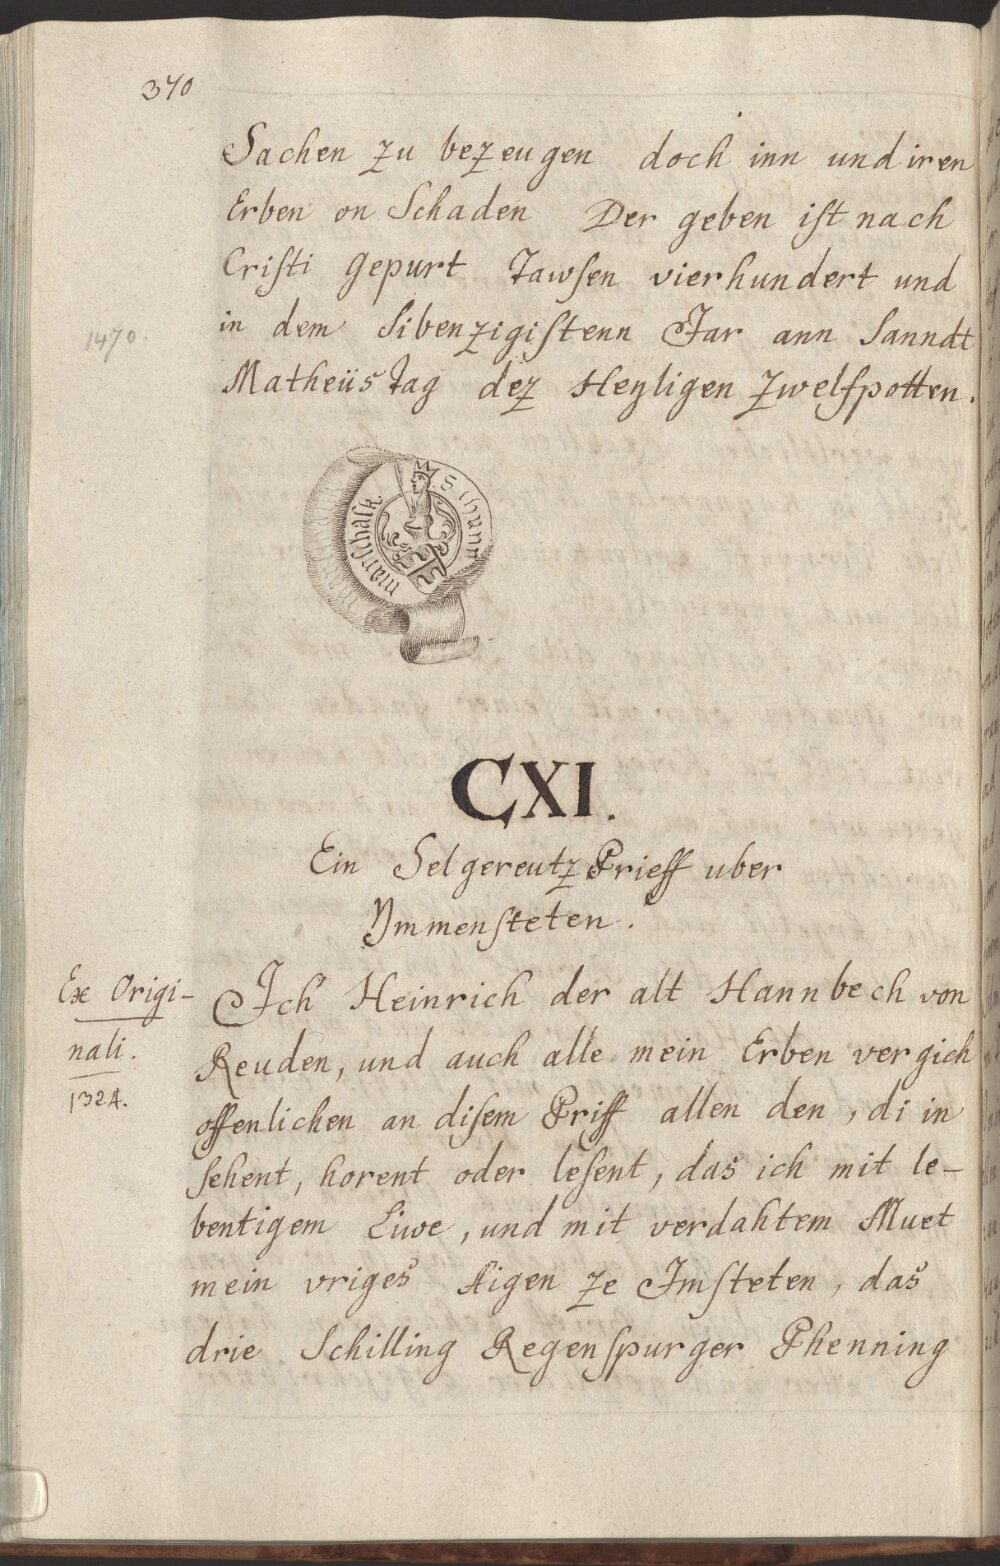 370
Sachen zu bezeugen doch inn und iren
Erben on Schaden Der geben iſt nach
Criſti Gepurt Tawſen vierhundert und
1470
in dem Sibenzigiſtenn Jar ann Sanndt
Matheüs Tag dez Heyligen Zwelfpotten.
S
manſchalk
CXI.
Ein Selgereutz Prieff uber
Ymmenſteten.
Ex Origi-
nali.
1324.
Ich Heinrich der alt Hannbech von
Reuden, und auch alle mein Erben vergich
offenlichen an diſem Priff allen den, di in
Sehent, horent oder leſent, das ich mit le-
bentigem Liwe, und mit verdahtem Muet
mein vriges Aigen ze Imſteten, das
drie Schilling Regenſpurger Phenning